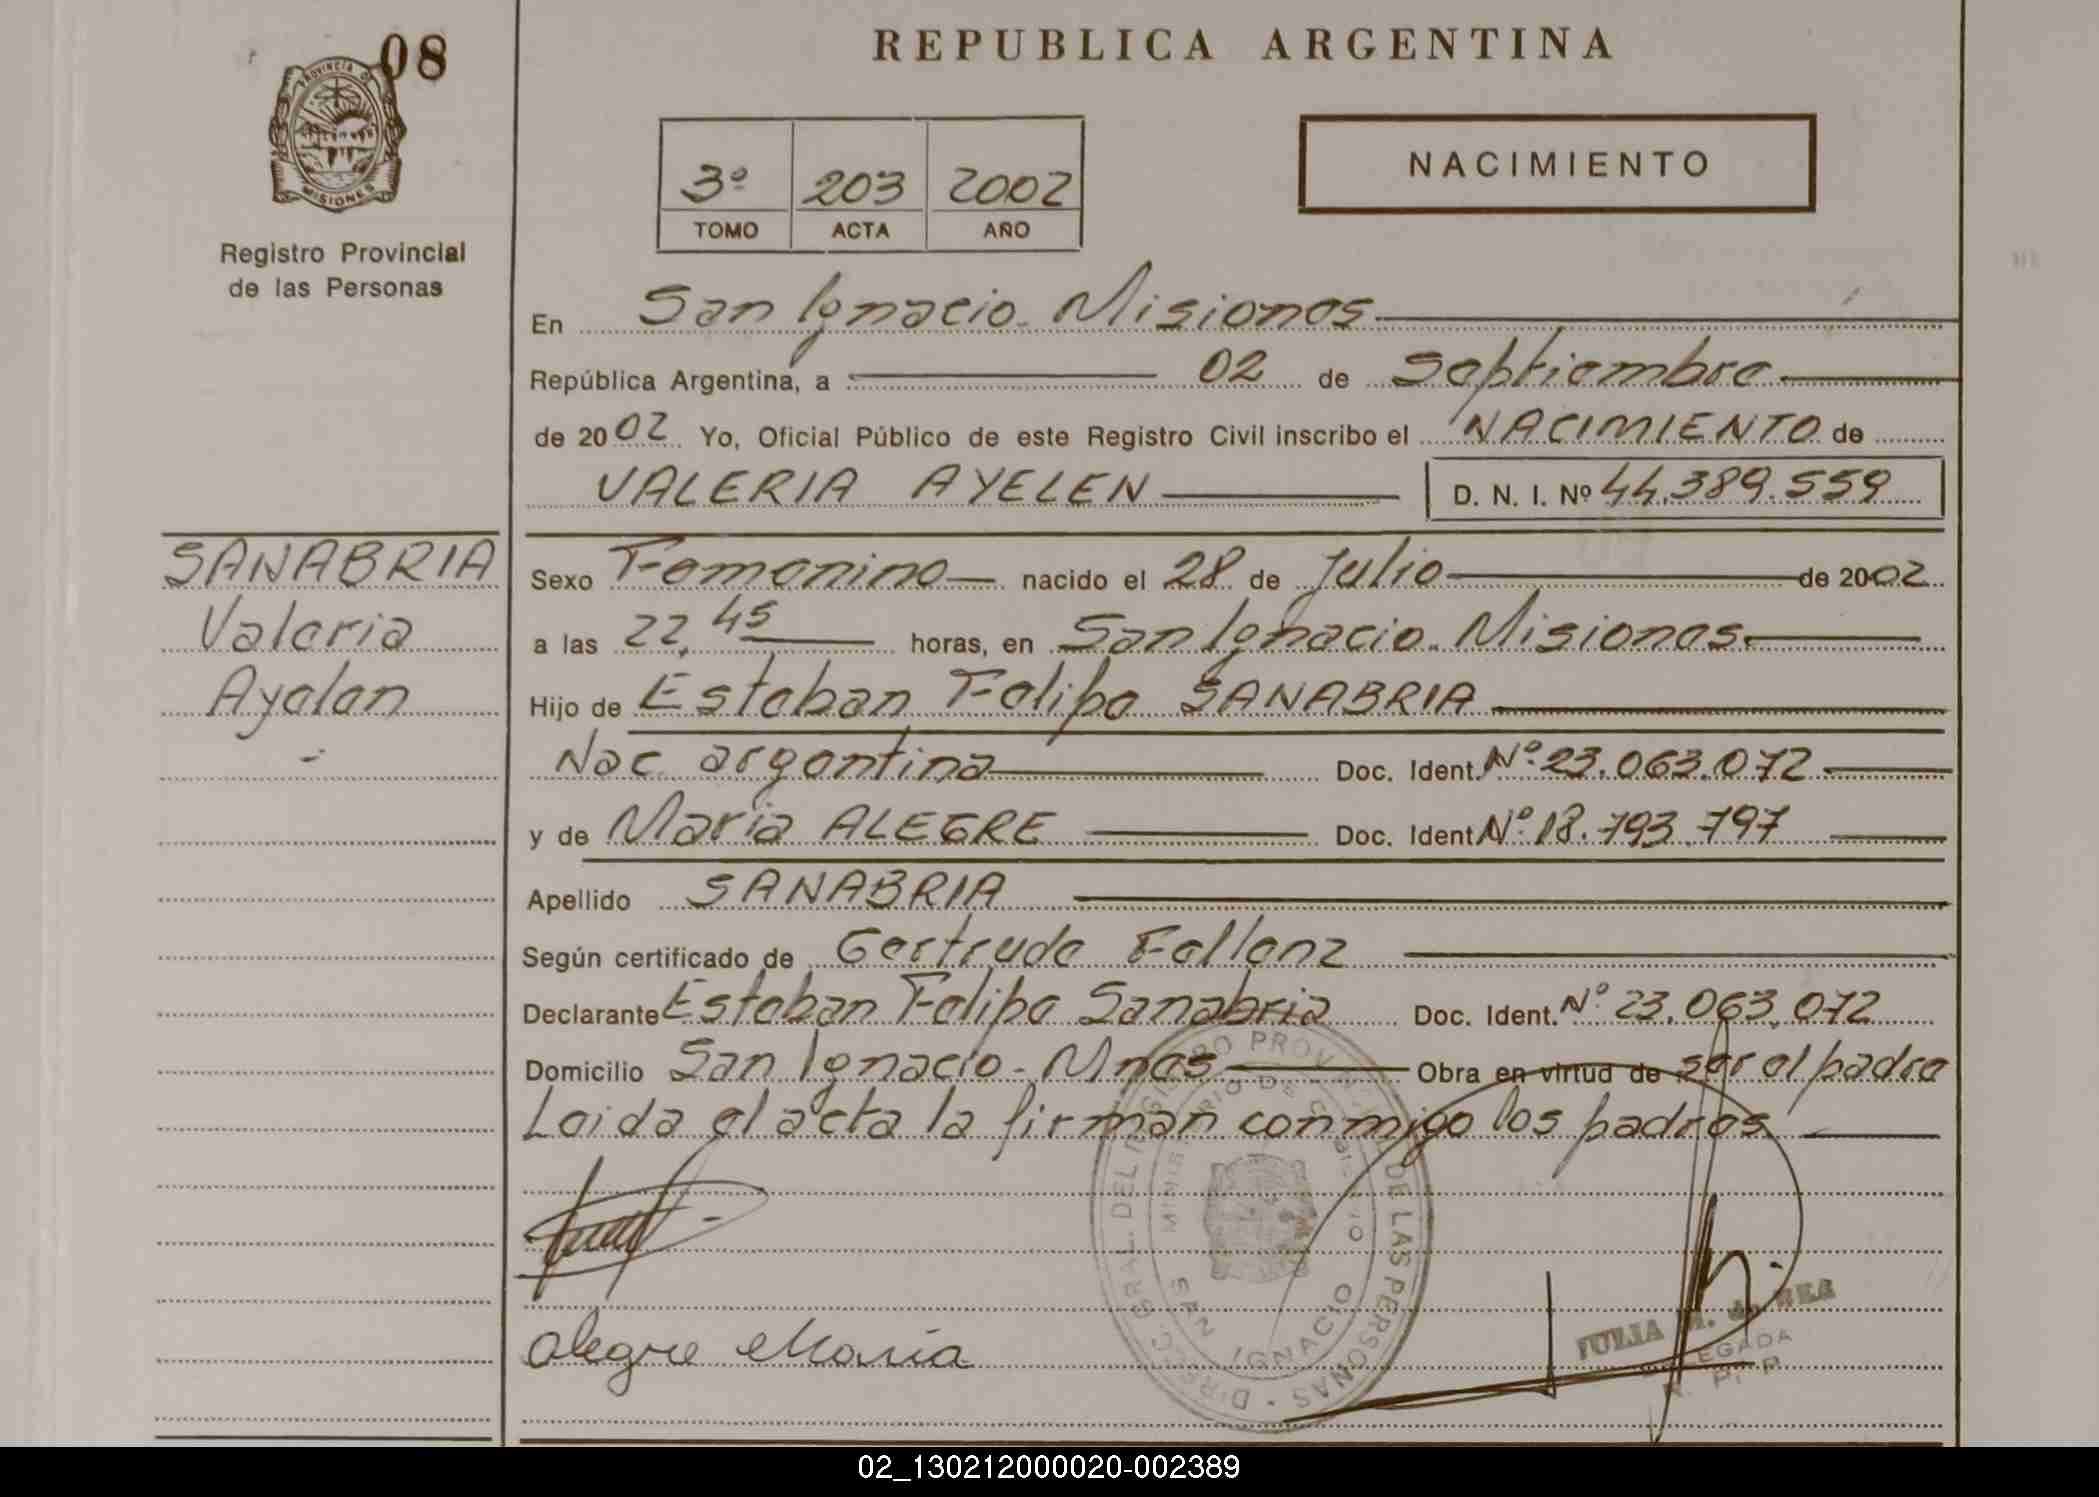 08
PROVINCIA DE
MISIONES
Registro Provincial
de las Personas
SANABRIA
Valeria
Ayelen
REPUBLICA ARGENTINA
3º 203 2002
TOMO ACTA AÑO
NACIMIENTO
En San Ignacio. Misiones
República Argentina, a 02 de Septiembre
de 2002 Yo, Oficial Público de este Registro Civil inscribo el NACIMIENTO de
VALERIA AYELEN D. N. I. Nº 44.389.559
Sexo Femenino nacido el 28 de Julio de 2002
a las 22,45 horas, en San Ignacio. Misiones
Hijo de Esteban Felipe SANABRIA
Nac. argentina Doc. Ident. Nº 23.063.072
y de Maria ALEGRE Doc. Ident. Nº 18.793.797
Apellido SANABRIA
Según certificado de Gertrude Fellenz
Declarante Esteban Felipe Sanabria Doc. Ident. Nº 23.063.072
Domicilio San Ignacio - Mnes Obra en virtud de ser el padre
Leida el acta la firman conmigo los padres
Alegre Maria
DIRECC. GRAL. DEL REGISTRO PROVINCIAL DE LAS PERSONAS
SAN IGNACIO
JULIA M. de
DELEGADA
R. P. P.
02_130212000020-002389